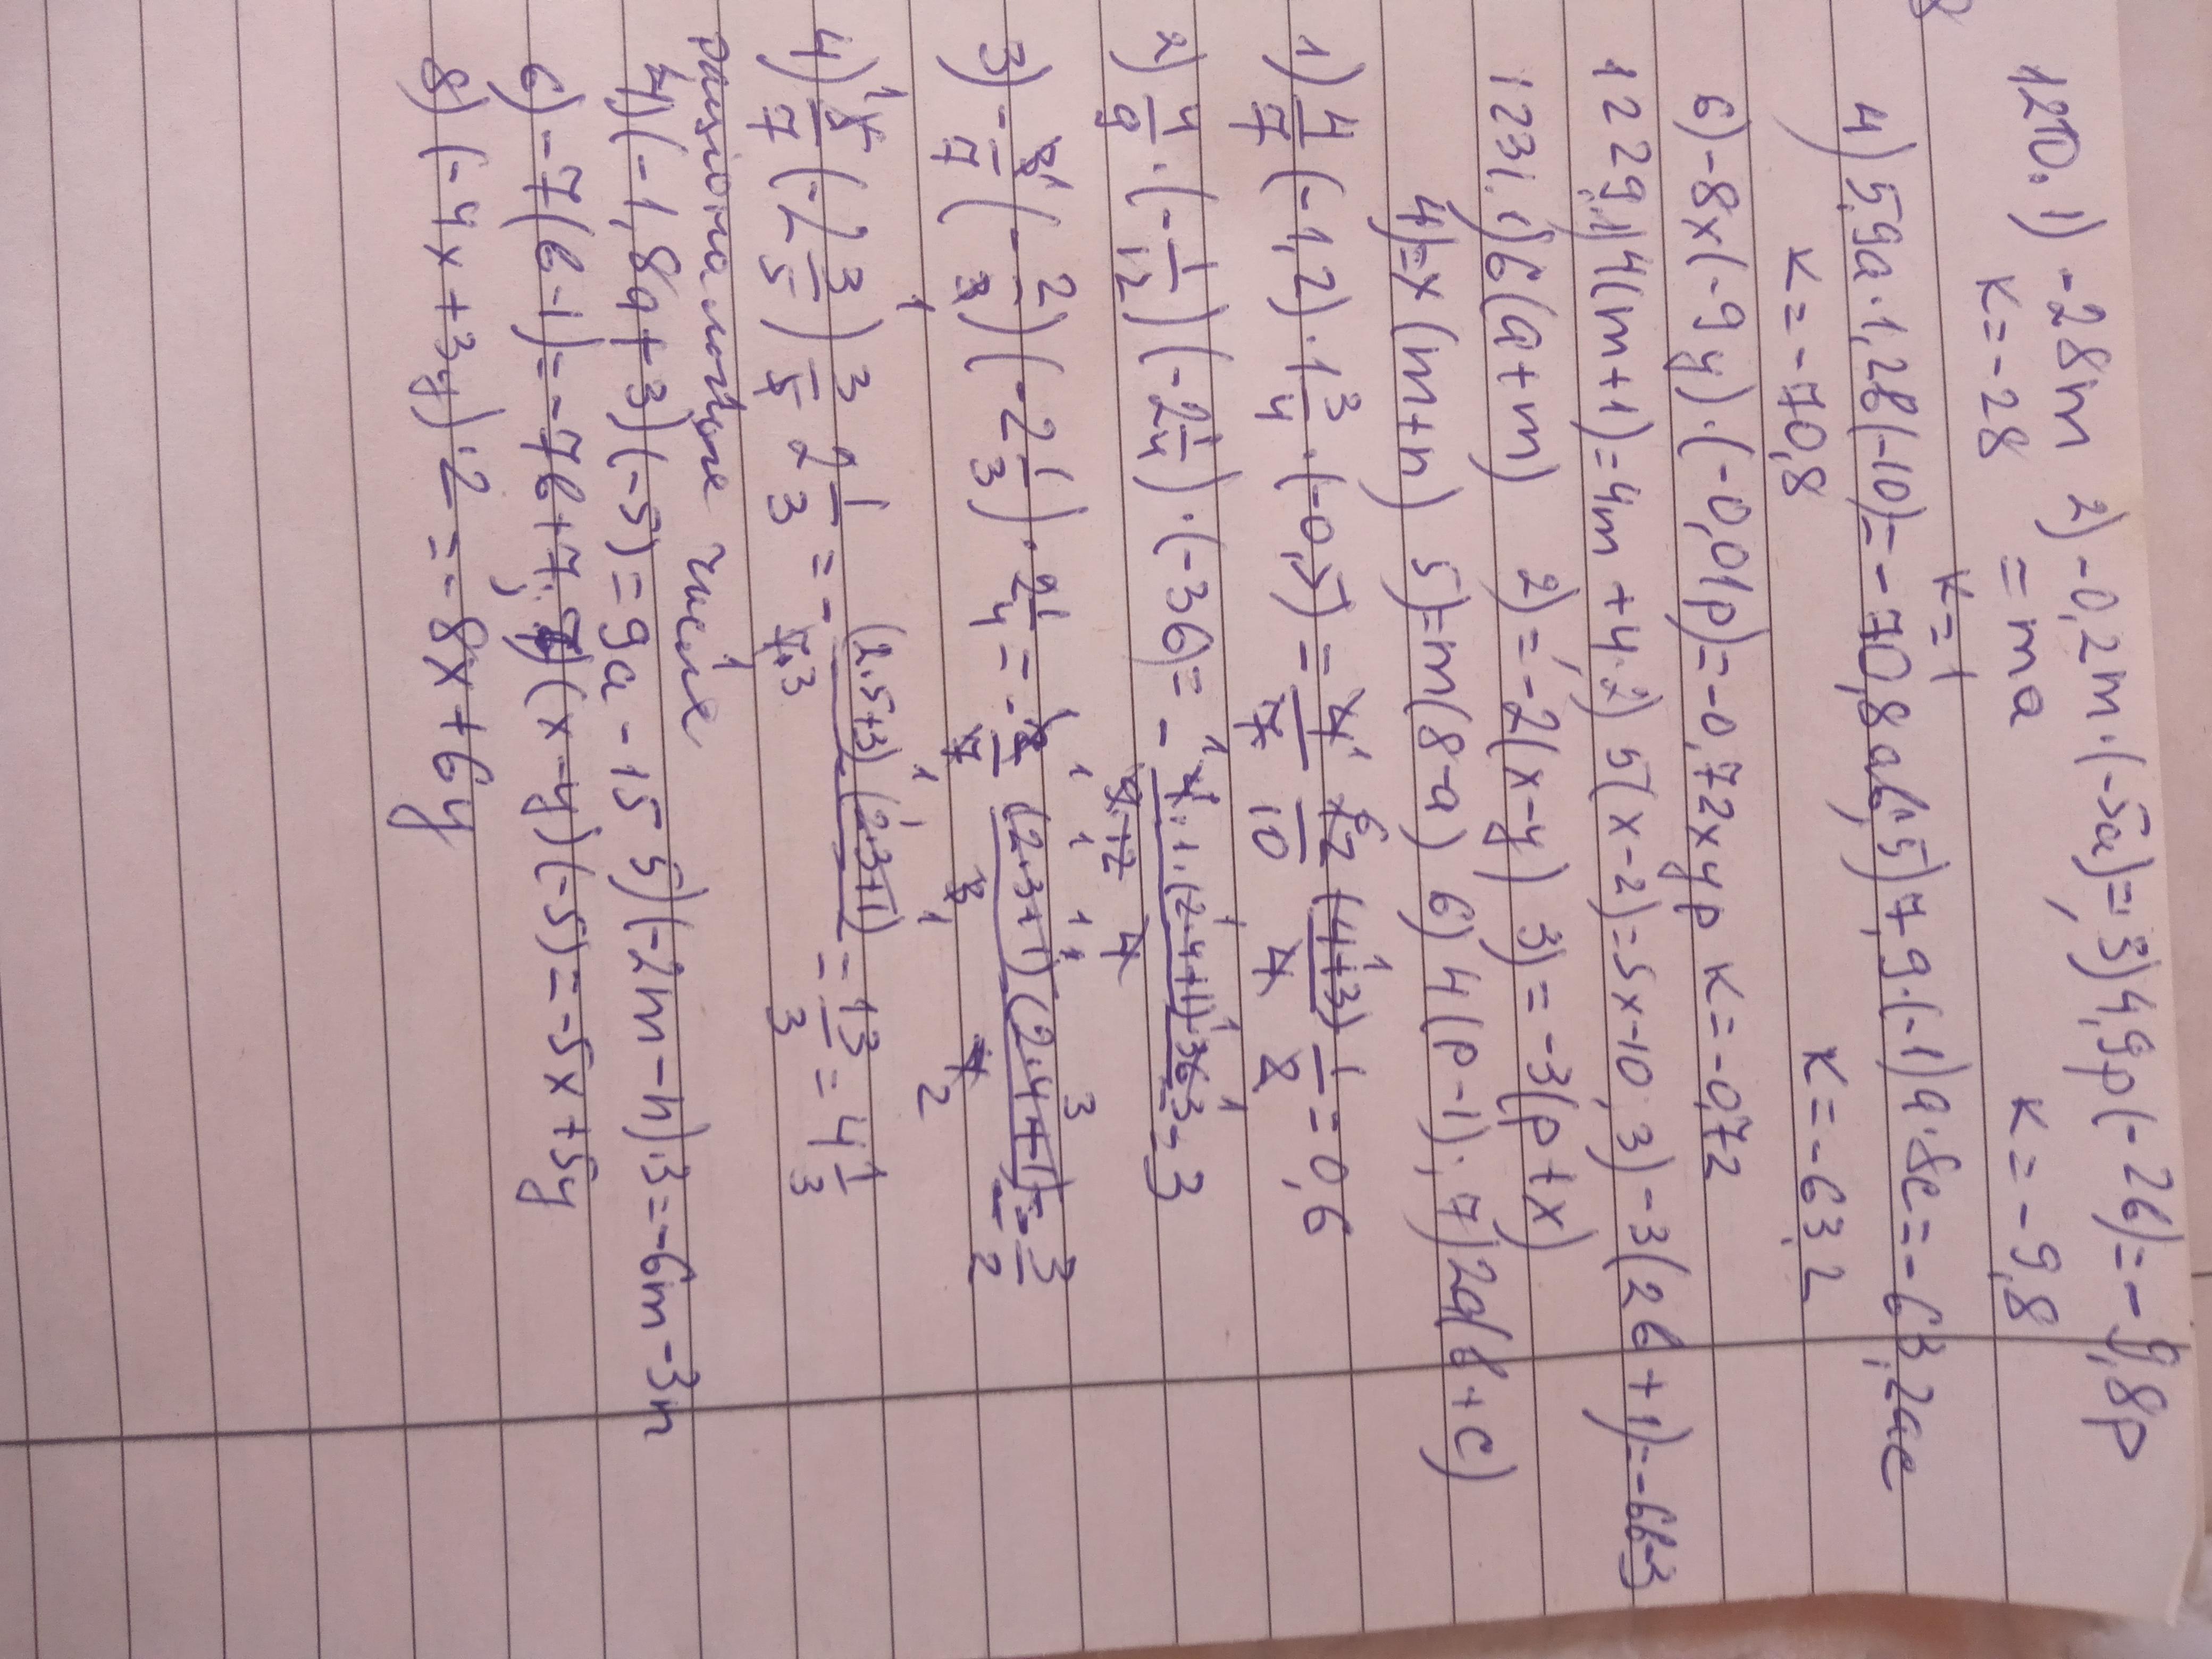 1210. 1) -28m 2) -0,2m·(-5a)=, 3) 4,9p(-2b)=-9,8p
k=-28 = ma k=-9,8
k=1
4) 5,9a·1,2b(-10)=-70,8ab, 5) 7,9·(-1)a·8c=-63,2ac
k=-70,8 k=-63,2
6) -8x(-9y)·(-0,01p)=-0,72xyp k=-0,72
1229. 1) 4(m+1)=4m+4. 2) 5(x-2)=5x-10; 3) -3(2b+1)=-6b-3
1231. 1) 6(a+m) 2)=,-2(x-y) 3)=-3(p+x)
4)=x(m+n) 5)=m(8-a) 6) 4(p-1); 7) 2a(b+c)
1) 4/7(-1,2)·1 3/4·(-0,5)= 4/7 12/10 (4+3)/4 1/2=0,6
2) 4/9·(-1/12)(-2 1/4)·(-36)=- 4·1·(2·4+1)·36/9·12 4=-3
3) -8/7(-2/3)(-2 1/3)·2 1/4=-8/7 (2·3+1)(2·4+1)=-3/2
4) 5/7(-2 3/5) 3/5 2 1/3=- (2·5+3)(2·3+1)/7·3=13/3=4 1/3
4) (-1,8a+3)(-5)=9a-15 5) (-2m-n)·3=-6m-3n
6) -7(b-1)=-7b+7; 7) (x-y)(-5)=-5x+5y
8) (-4x+3y)·2=-8x+6y